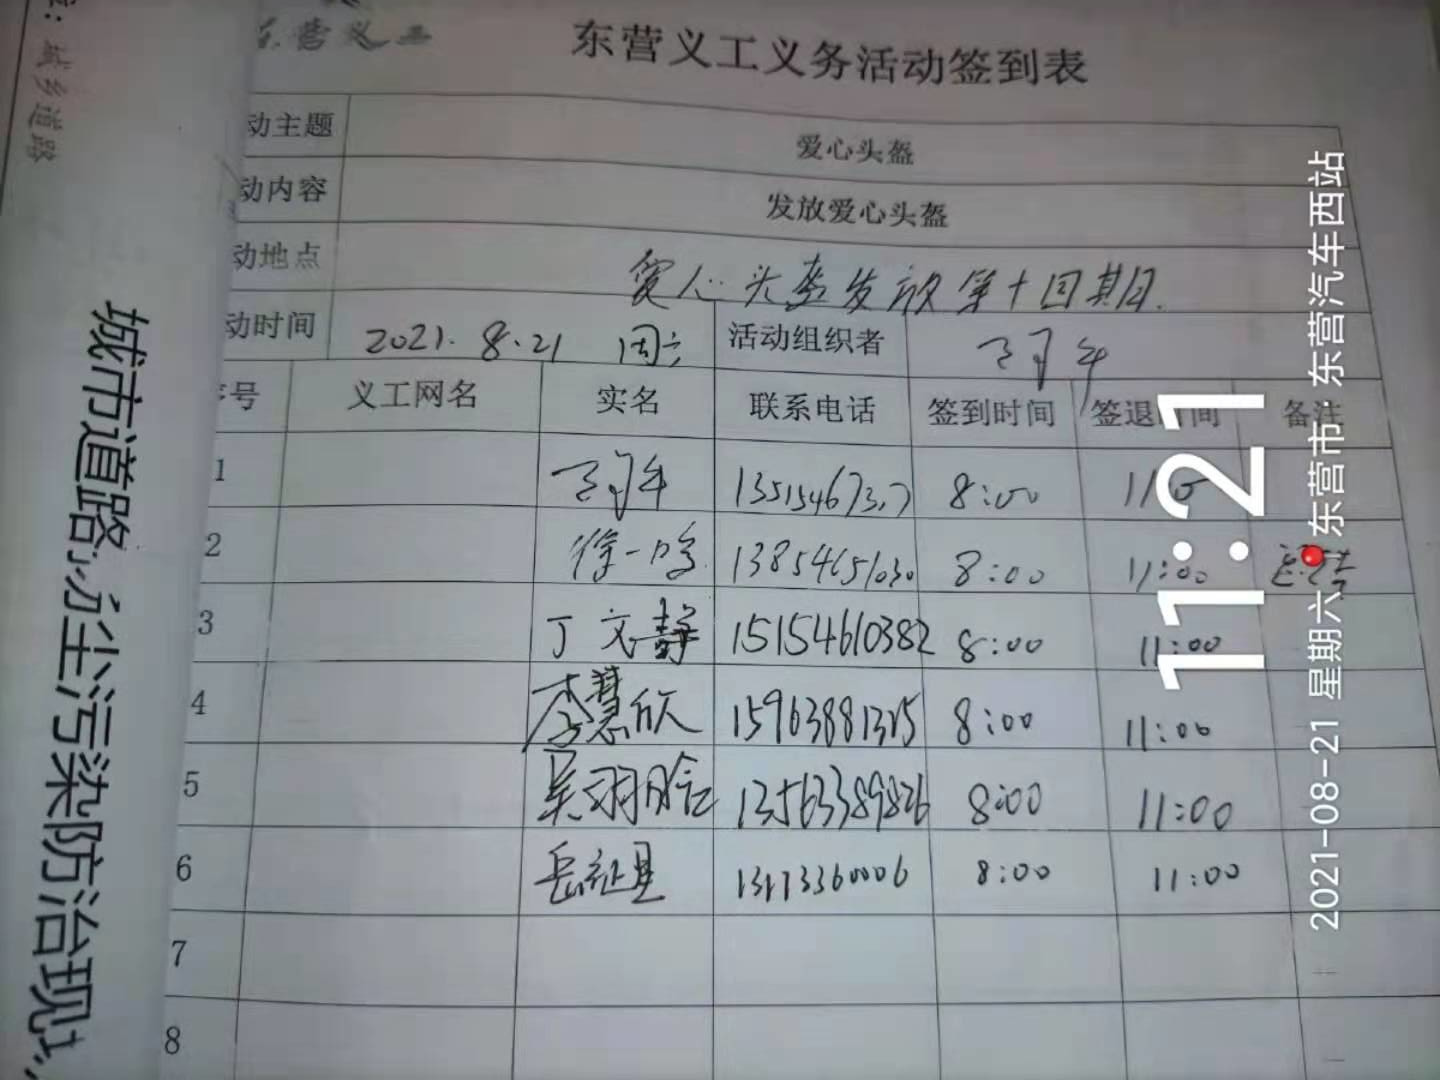 东营义工
东营义工义务活动签到表
动主题 爱心头盔
动内容 发放爱心头盔
动地点 爱心头盔发放第十四期日.
动时间 2021.8.21 周六 活动组织者
序号 义工网名 实名 联系电话 签到时间 签退时间 备注
1 8:00
2 徐一鸣 13854651030 8:00 11:00
3 丁文静 15154610382 8:00 11:00
4 李慧欣 15963881315 8:00 11:00
5 吴羽晗 13563389826 8:00 11:00
6 岳 13173360006 8:00 11:00
7
8
城乡道路
城市道路扬尘污染防治现
11:21
2021-08-21 星期六 东营市·东营汽车西站